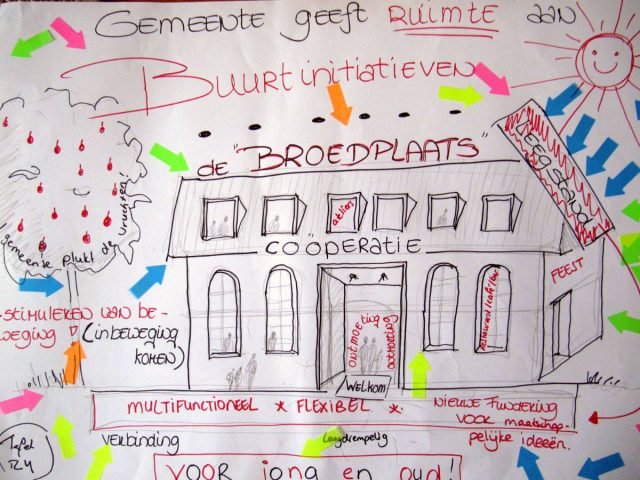 GEMEENTE GEEFT RUIMTE AAN
BUURTINITIATIEVEN
de "BROEDPLAATS"
COÖPERATIE
atelier
Gemeente plukt de vruchten!
FEEST
ontmoeting
restaurant/café/bar
STIMULEREN VAN BE-
WEGING
(IN BEWEGING
KOMEN)
WELKOM
MULTIFUNCTIONEEL * FLEXIBEL *
NIEUWE FUNDERING
VOOR maatschap-
pelijke ideeën.
VERBINDING
Laagdrempelig
Tafel
VOOR jong en oud!